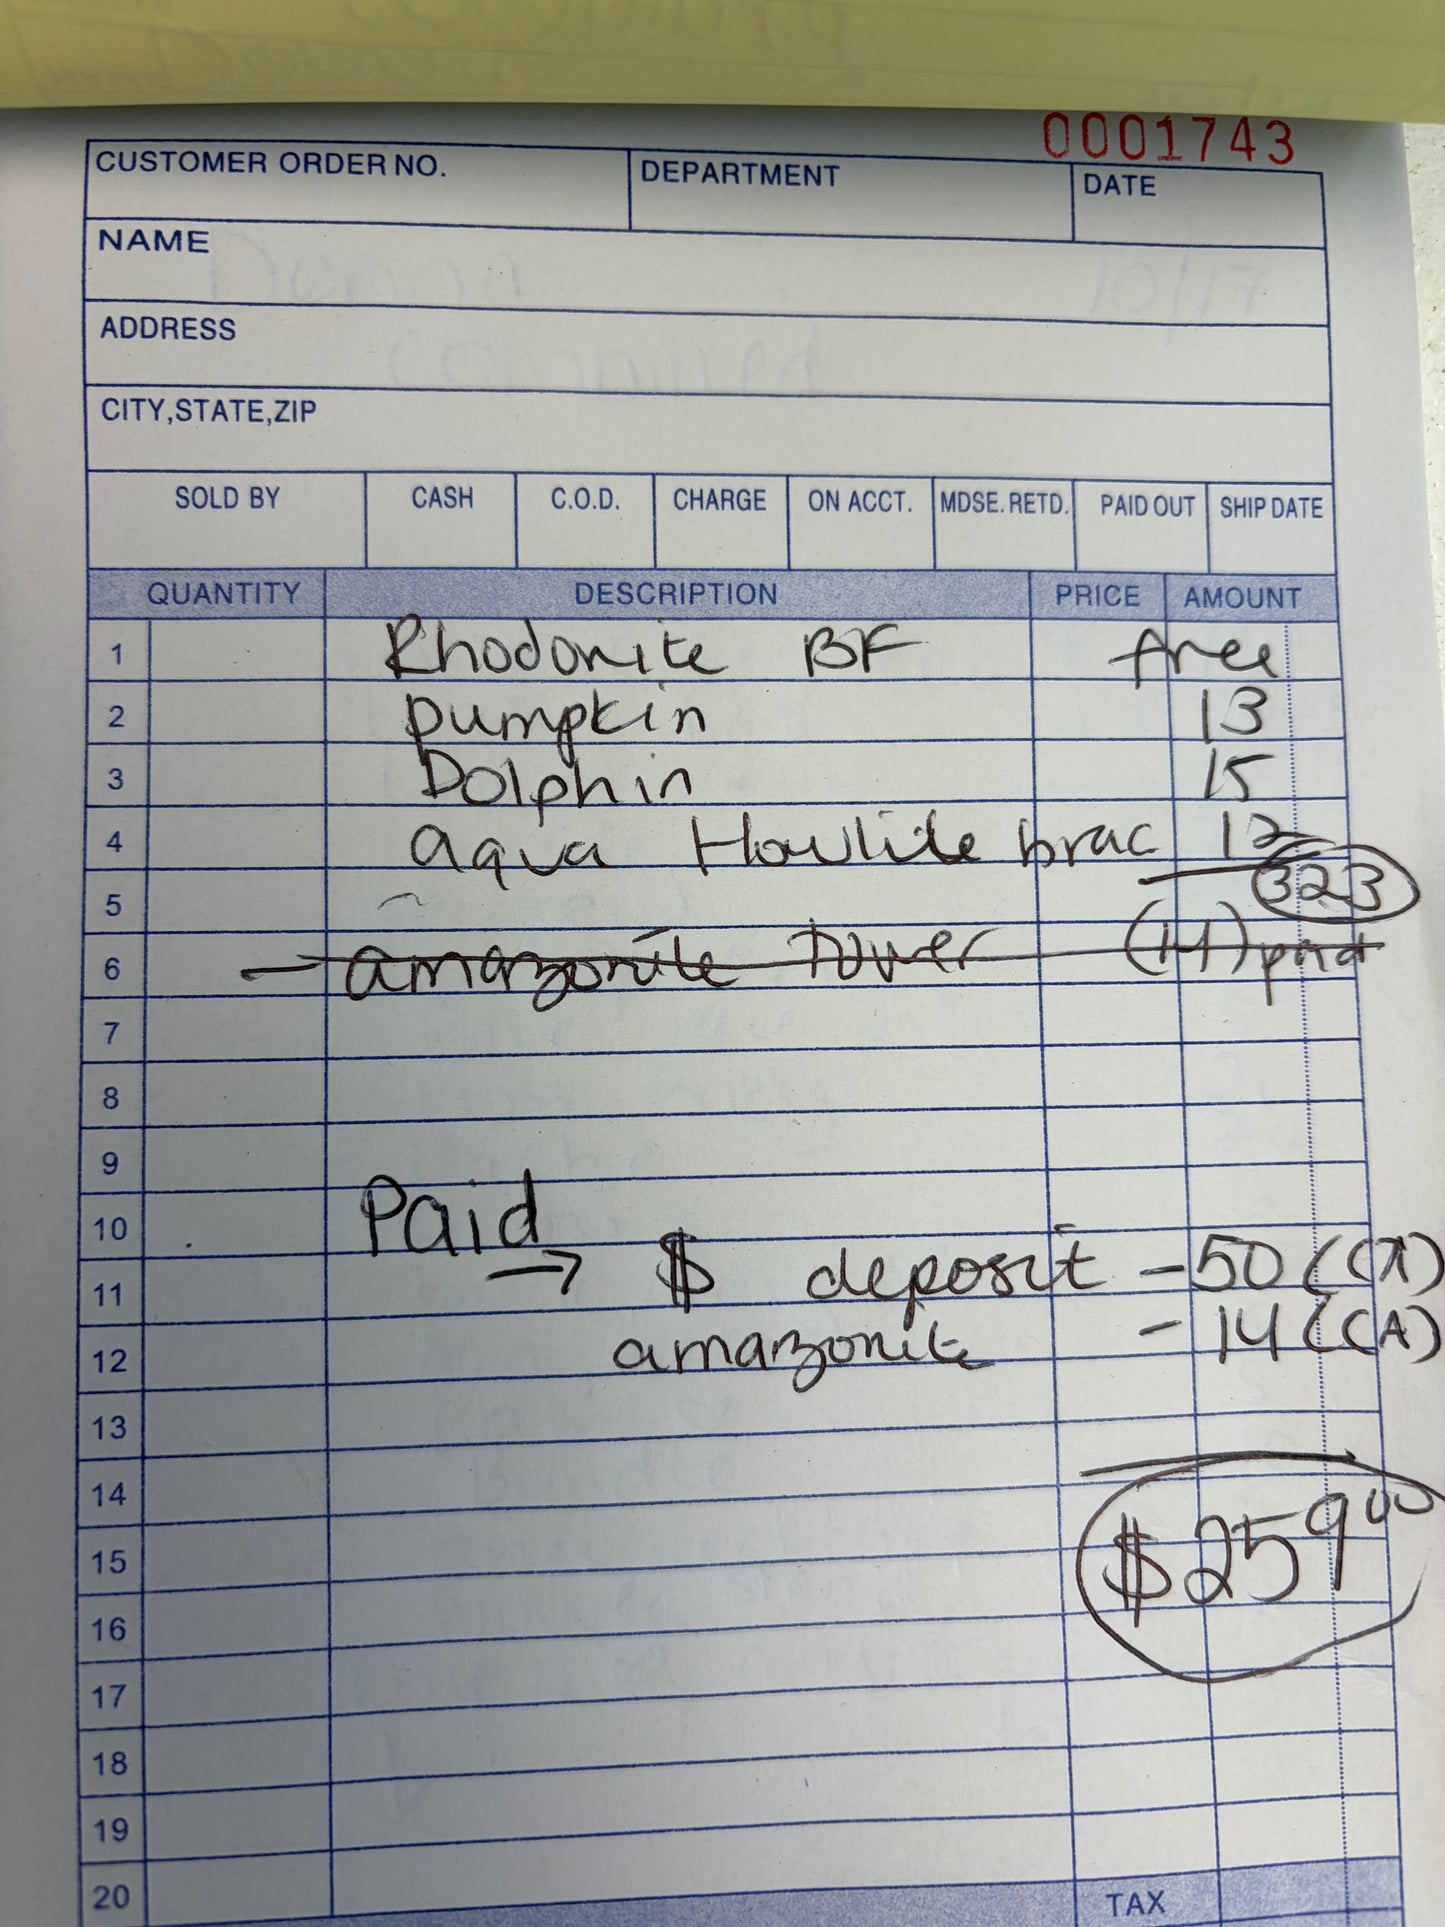 0001743
CUSTOMER ORDER NO. DEPARTMENT DATE
NAME
ADDRESS
CITY,STATE,ZIP
SOLD BY CASH C.O.D. CHARGE ON ACCT. MDSE. RETD. PAID OUT SHIP DATE
QUANTITY DESCRIPTION PRICE AMOUNT
1 Rhodonite BF free
2 pumpkin 13
3 Dolphin 15
4 aqua Howlite brac 12
5 323
6 - amazonite Tower (14) paid
7
8
9
10 Paid
11 → $ deposit - 50 (CA)
12 amazonite - 14 (CA)
13
14
15 $259.00
16
17
18
19
20 TAX